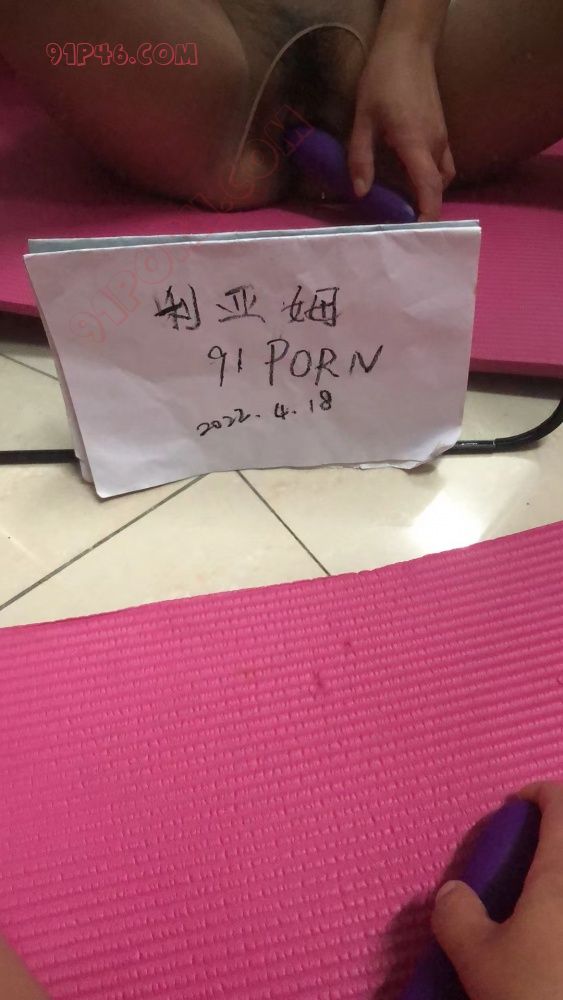 91P46.COM
91PORN.COM
利亚姆
91 PORN
2022.4.18